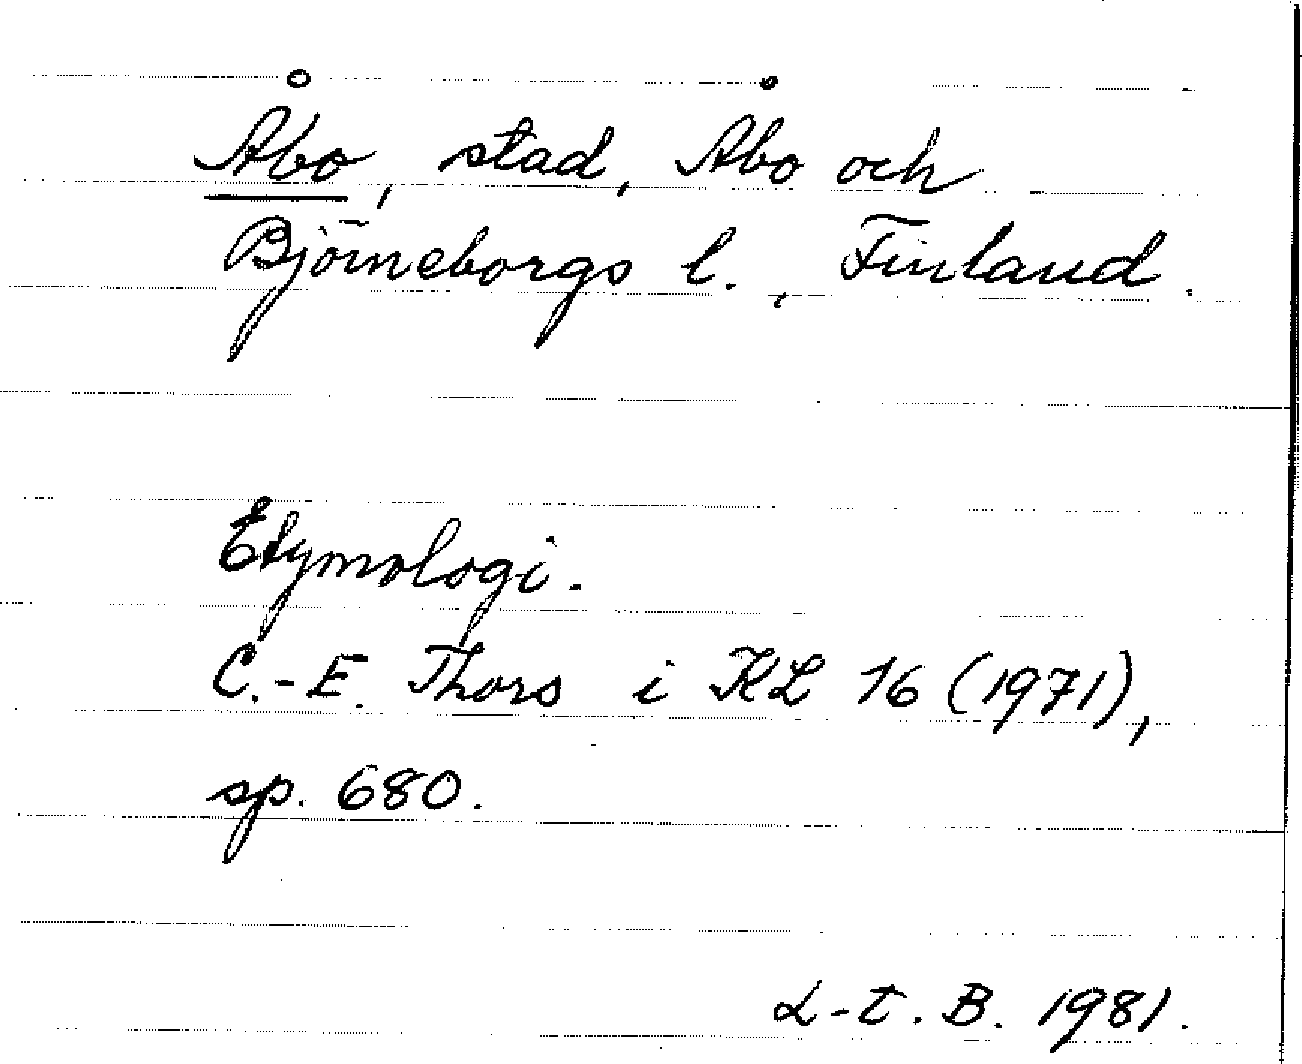 Åbo, stad, Åbo och
Björneborgs l., Finland.
Etymologi.
C.-E. Thors i KL 16 (1971),
sp. 680.
L-t. B. 1981.